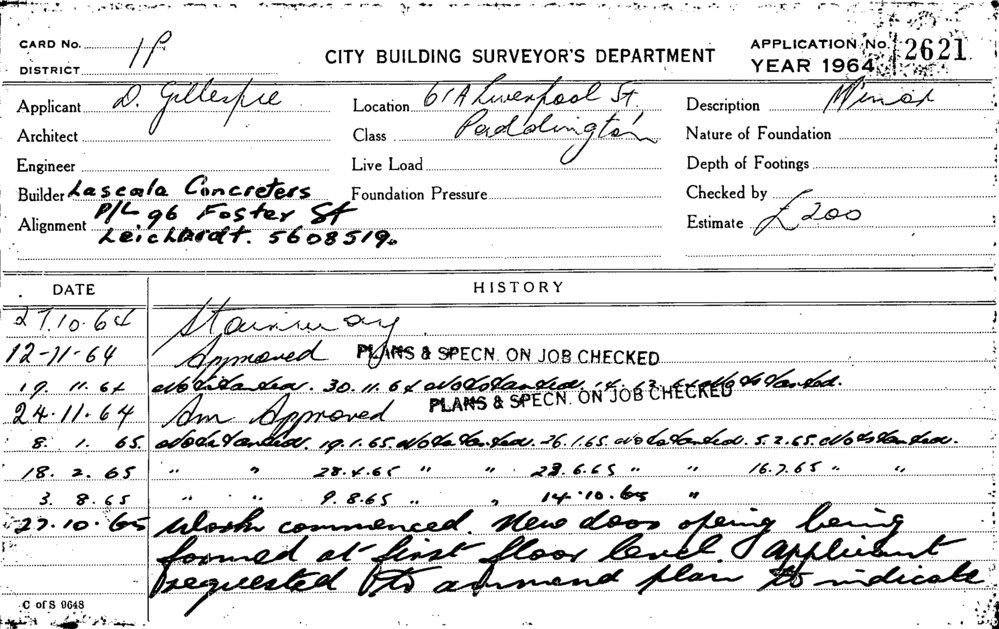 CARD No. 1P
DISTRICT
CITY BUILDING SURVEYOR'S DEPARTMENT
APPLICATION No. 2621
YEAR 1964
Applicant D. Gillespie
Location 61A Liverpool St
Description Minor
Architect
Class Paddington
Nature of Foundation
Engineer
Live Load
Depth of Footings
Builder Lascala Concreters
Foundation Pressure
Checked by
Alignment P/L 96 Foster St
Leichardt. 5608519.
Estimate £200
DATE HISTORY
27.10.64 Stairway
12-11-64 Approved PLANS & SPECN. ON JOB CHECKED
19. 11. 64 Not Started. 30.11.64 Not Started. 14. 12. 64 Not Started.
24.11.64 Am Approved PLANS & SPECN. ON JOB CHECKED
8. 1. 65 Not Started. 19.1.65. Not Started. 26.1.65. Not Started. 5.2.65. Not Started.
18. 2. 65 " " 28.4.65 " " 28.6.65 " " 16.7.65 " "
3. 8. 65 " " 9.8.65 " " 14.10.65 "
27.10.65 Work commenced. New door opeing being
formed at first floor level. Applicant
requested to ammend plan to indicate
C of S 9648